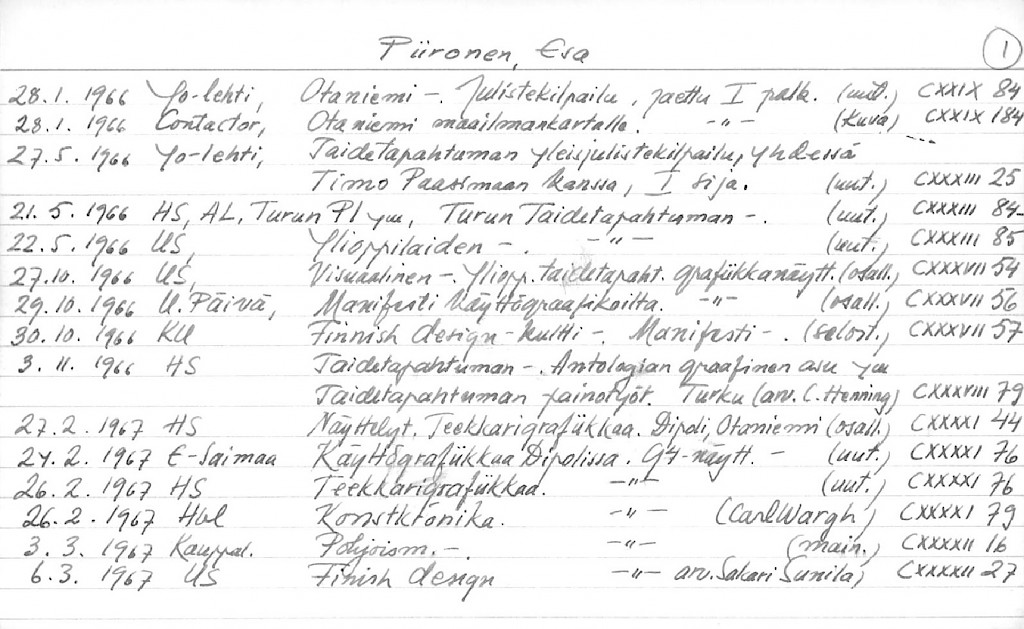 Piironen, Esa 1
28.1. 1966 Yo-lehti, Otaniemi -. Julistekilpailu, jaettu I palk. (uut.) CXXIX 84
28.1. 1966 Contactor, Otaniemi maailmankartalle. -"- (kuva) CXXIX 184
27.5. 1966 Yo-lehti, Taidetapahtuman yleisjulistekilpailu, yhdessä
Timo Paasimaan kanssa, I sija. (uut.) CXXXIII 25
21.5. 1966 HS, AL, Turun Pl ym, Turun Taidetapahtuman -. (uut.) CXXXIII 84
22.5. 1966 US, Ylioppilaiden -. -"- (uut.) CXXXIII 85
27.10. 1966 US, Visuaalinen -. Yliopp. taidetapaht. grafiikkanäytt. (osall.) CXXXVII 54
29.10. 1966 U. Päivä, Manifesti käyttögraafikoilta. -"- (osall.) CXXXVII 56
30.10. 1966 KU Finnish design-kultti -. Manifesti -. (selost.) CXXXVII 57
3.11. 1966 HS Taidetapahtuman -. Antologian graafinen asu ym
Taidetapahtuman painotyöt. Turku (arv. C. Henning) CXXXVIII 79
27.2. 1967 HS Näyttelyt. Teekkarigrafiikkaa. Dipoli, Otaniemi (osall.) CXXXXI 44
24.2. 1967 E-Saimaa Käyttögrafiikkaa Dipolissa. G4-näytt. - (uut.) CXXXXI 76
26.2. 1967 HS Teekkarigrafiikkaa. -"- (uut.) CXXXXI 76
26.2. 1967 Hbl Konstkrönika. -"- (Carl Wargh) CXXXXI 79
3.3. 1967 Kauppal. Pohjoism. -. -"- (main.) CXXXXII 16
6.3. 1967 US Finish design -"- arv. Sakari Sunila, CXXXXII 27